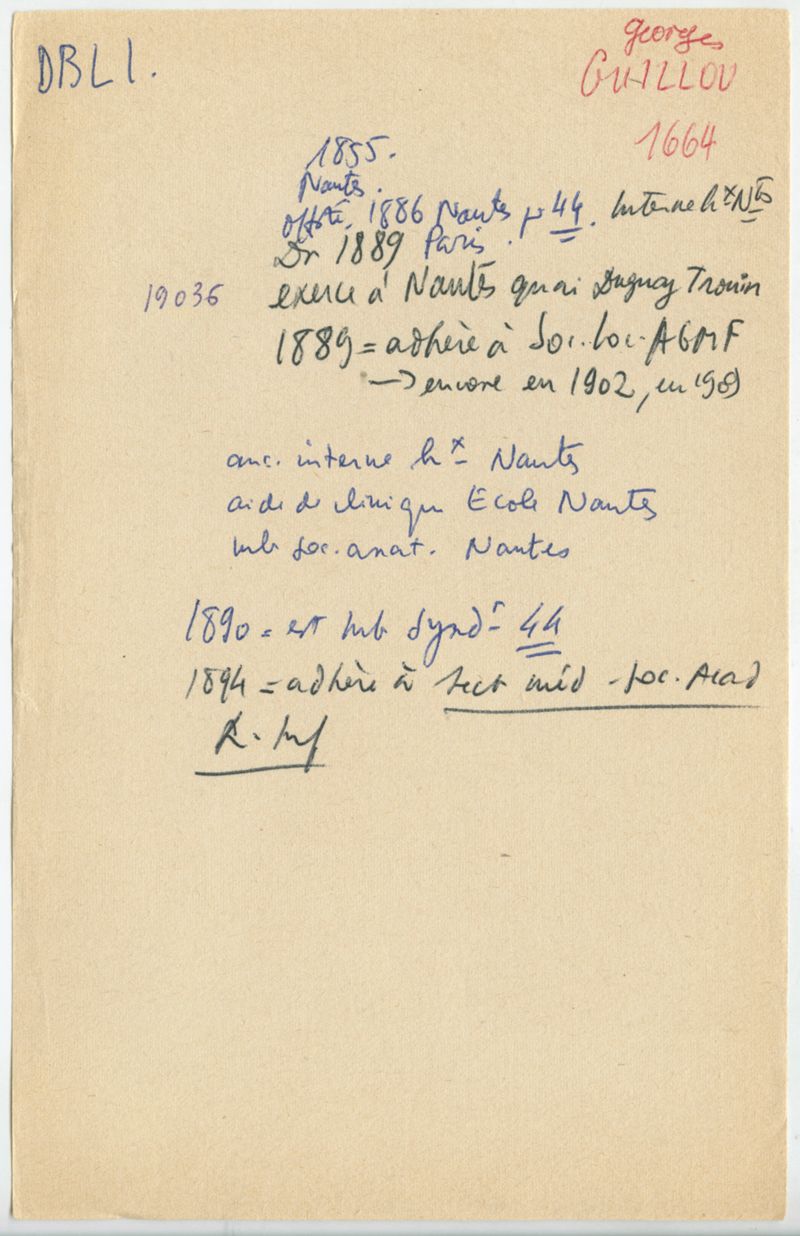 DBLI.
Georges
GUILLOU
1664
1855.
Nantes.
offsté. 1886 Nantes pr 44. Interne hx Ntes
Dr 1889 Paris.
19036
exerce à Nantes quai Duguay Trouin
1889 = adhère à Soc. loc. AGMF
→ encore en 1902, en 1909
anc. interne hx Nantes
aide de clinique Ecole Nantes
mb soc. anat. Nantes
1890 = est mb Syndt 44
1894 = adhère à Sect méd - Soc. Acad
L. Inf